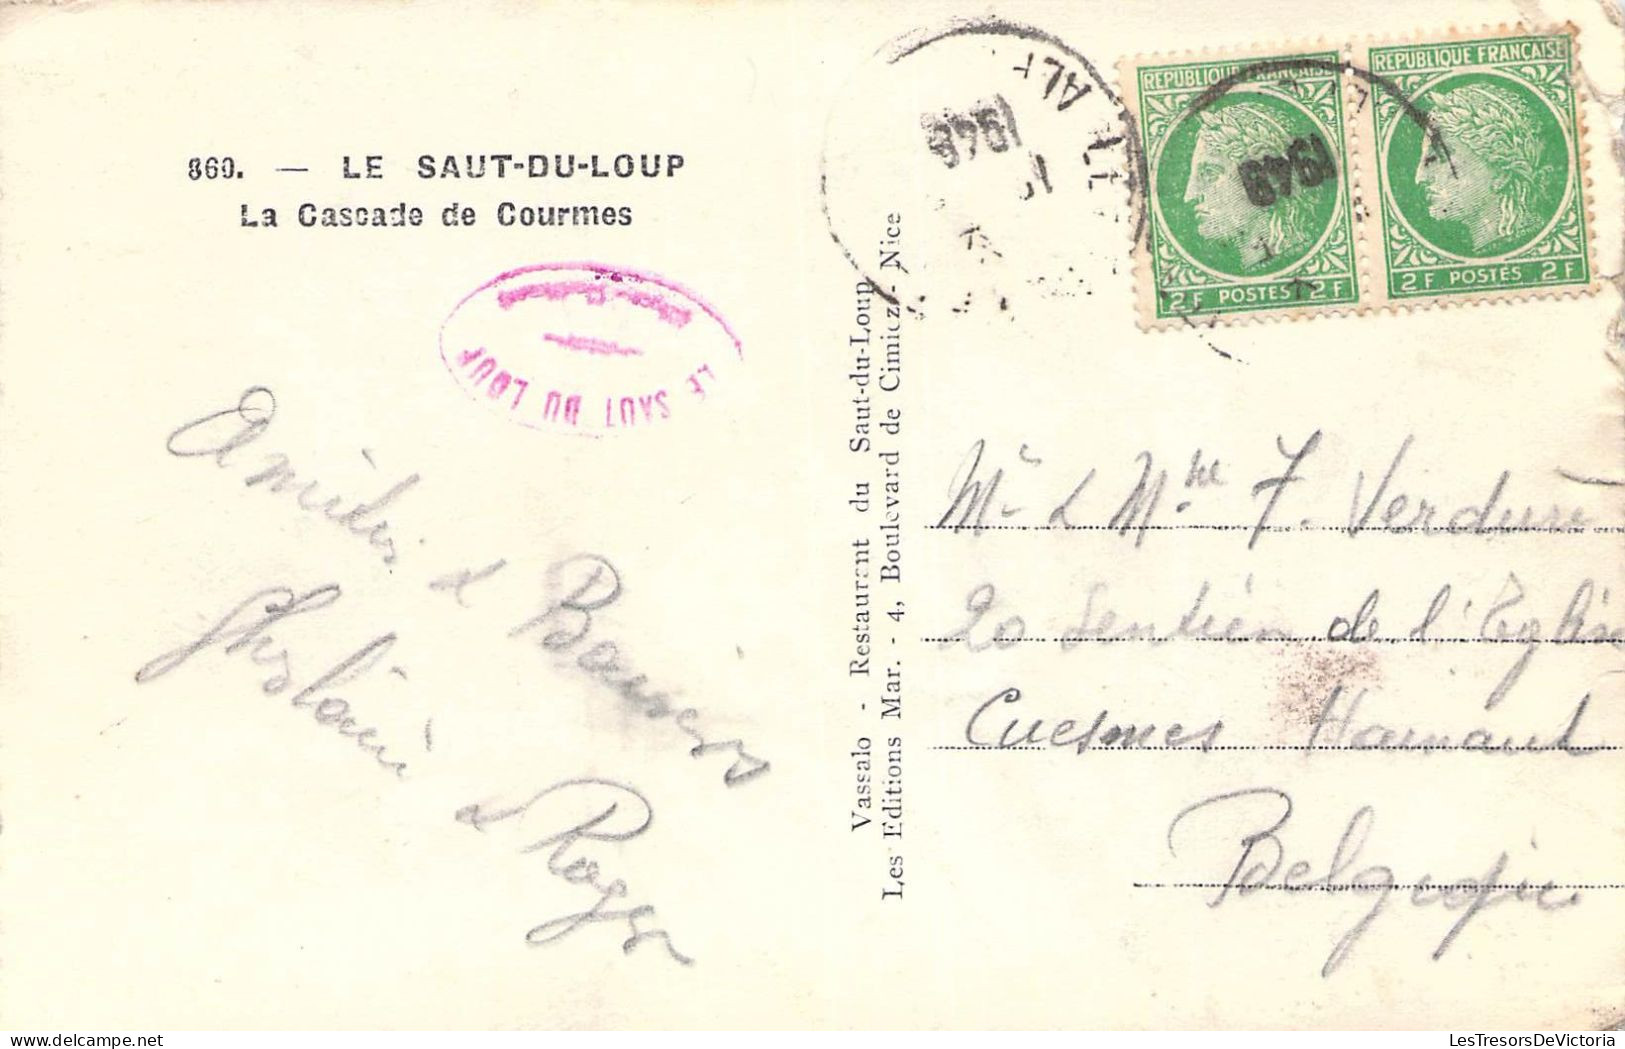 860. — LE SAUT-DU-LOUP
La Cascade de Courmes
LE SAUT DU LOUP
Amitiés & Baisers
Ghislaine & Roger
Vassalo - Restaurant du Saut-du-Loup
Les Editions Mar. - 4, Boulevard de Cimiez - Nice
1948
REPUBLIQUE FRANÇAISE
2F POSTES 2F
1948
REPUBLIQUE FRANÇAISE
2F POSTES 2F
Mr & Mme F. Verdure
20 Sentier de l'Eglise
Cuesmes Hainaut
Belgique
LesTresorsDeVictoria